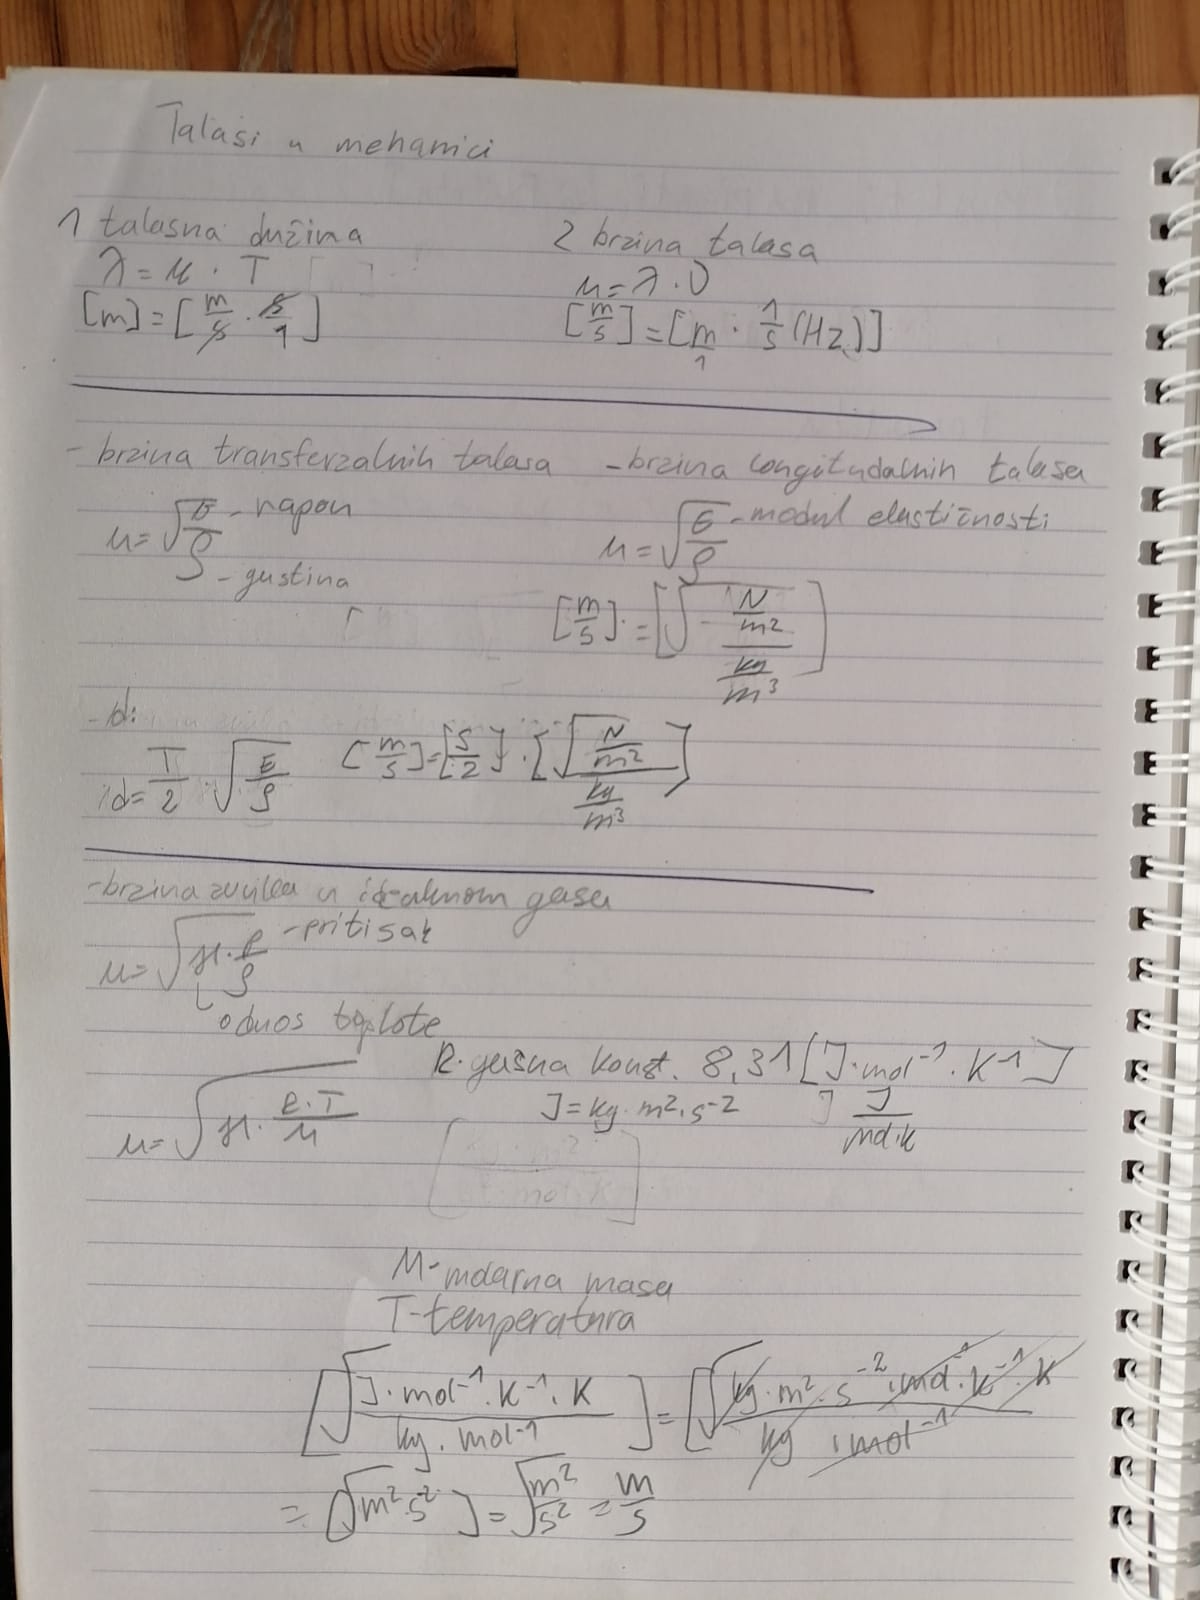 Talasi u mehanici
1 talasna dužina
λ = u · T
[m] = [m/s · s/1]
2 brzina talasa
u = λ · ν
[m/s] = [m/1 · 1/s (Hz)]
- brzina transferzalnih talasa
u = √(σ/ρ) - napon
- gustina
- brzina longitudalnih talasa
u = √(E/ρ) - modul elastičnosti
[m/s] = [√((N/m²)/(kg/m³))]
- d:
d = T/2 √(E/ρ) [m/s] = [s/2] · [√((N/m²)/(kg/m³))]
- brzina zvuka u idealnom gasu
u = √(ϰ · p/ρ) - pritisak
odnos toplote
u = √(ϰ · R·T/M)
R - gasna konst. 8,31 [J·mol⁻¹·K⁻¹]
J = kg·m²·s⁻² J/mol·K
M - molarna masa
T - temperatura
[√(J·mol⁻¹·K⁻¹·K / kg·mol⁻¹)] = [√(kg·m²·s⁻²·mol⁻¹·K⁻¹·K / kg·mol⁻¹)]
= [√m²·s⁻²] = √(m²/s²) = m/s